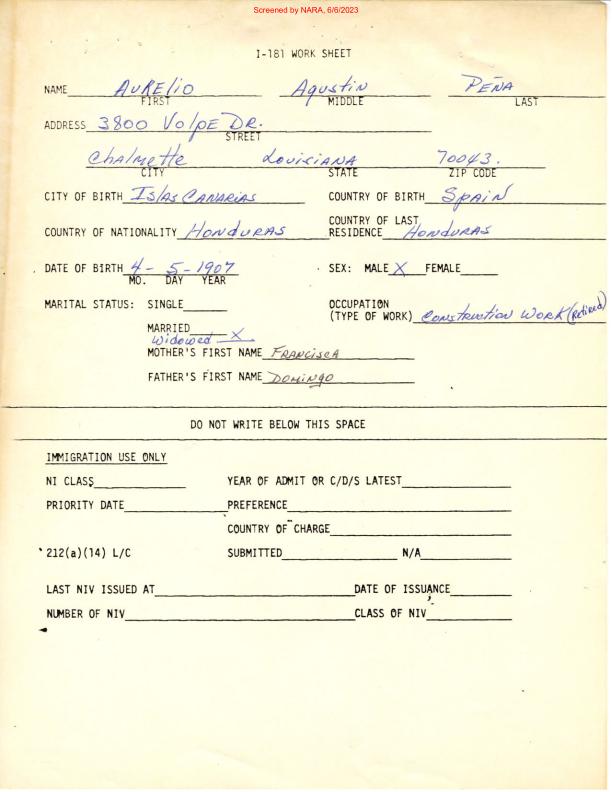 Screened by NARA, 6/6/2023
I-181 WORK SHEET
NAME AURElio Agustin PEÑA
FIRST MIDDLE LAST
ADDRESS 3800 VolpE DR.
STREET
Chalmette Louisiana 70043.
CITY STATE ZIP CODE
CITY OF BIRTH Islas CANARIAS COUNTRY OF BIRTH Spain
COUNTRY OF NATIONALITY HONDURAS COUNTRY OF LAST RESIDENCE HONDURAS
DATE OF BIRTH 4- 5-1907 SEX: MALE X FEMALE
MO. DAY YEAR
MARITAL STATUS: SINGLE OCCUPATION (TYPE OF WORK) Construction WORK (Retired)
MARRIED
Widowed X
MOTHER'S FIRST NAME FRANCISCA
FATHER'S FIRST NAME DOMINGO
DO NOT WRITE BELOW THIS SPACE
IMMIGRATION USE ONLY
NI CLASS YEAR OF ADMIT OR C/D/S LATEST
PRIORITY DATE PREFERENCE
COUNTRY OF CHARGE
212(a)(14) L/C SUBMITTED N/A
LAST NIV ISSUED AT DATE OF ISSUANCE
NUMBER OF NIV CLASS OF NIV